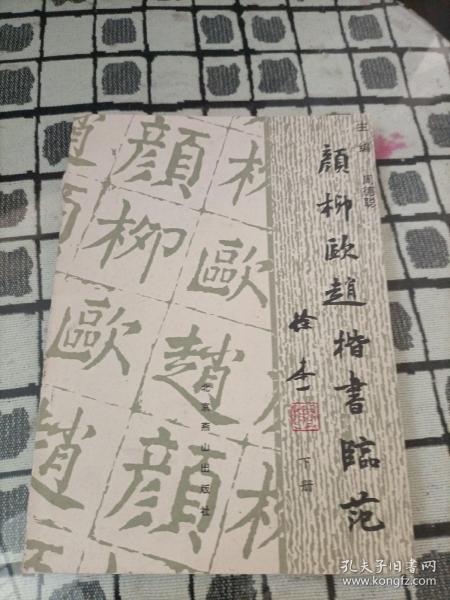 主编 周德聪
顏柳歐趙楷書臨范
徐本一
下册
北京燕山出版社
顏 柳
柳 歐
歐 趙
趙 顏 柳
孔夫子旧书网
www.kongfz.com